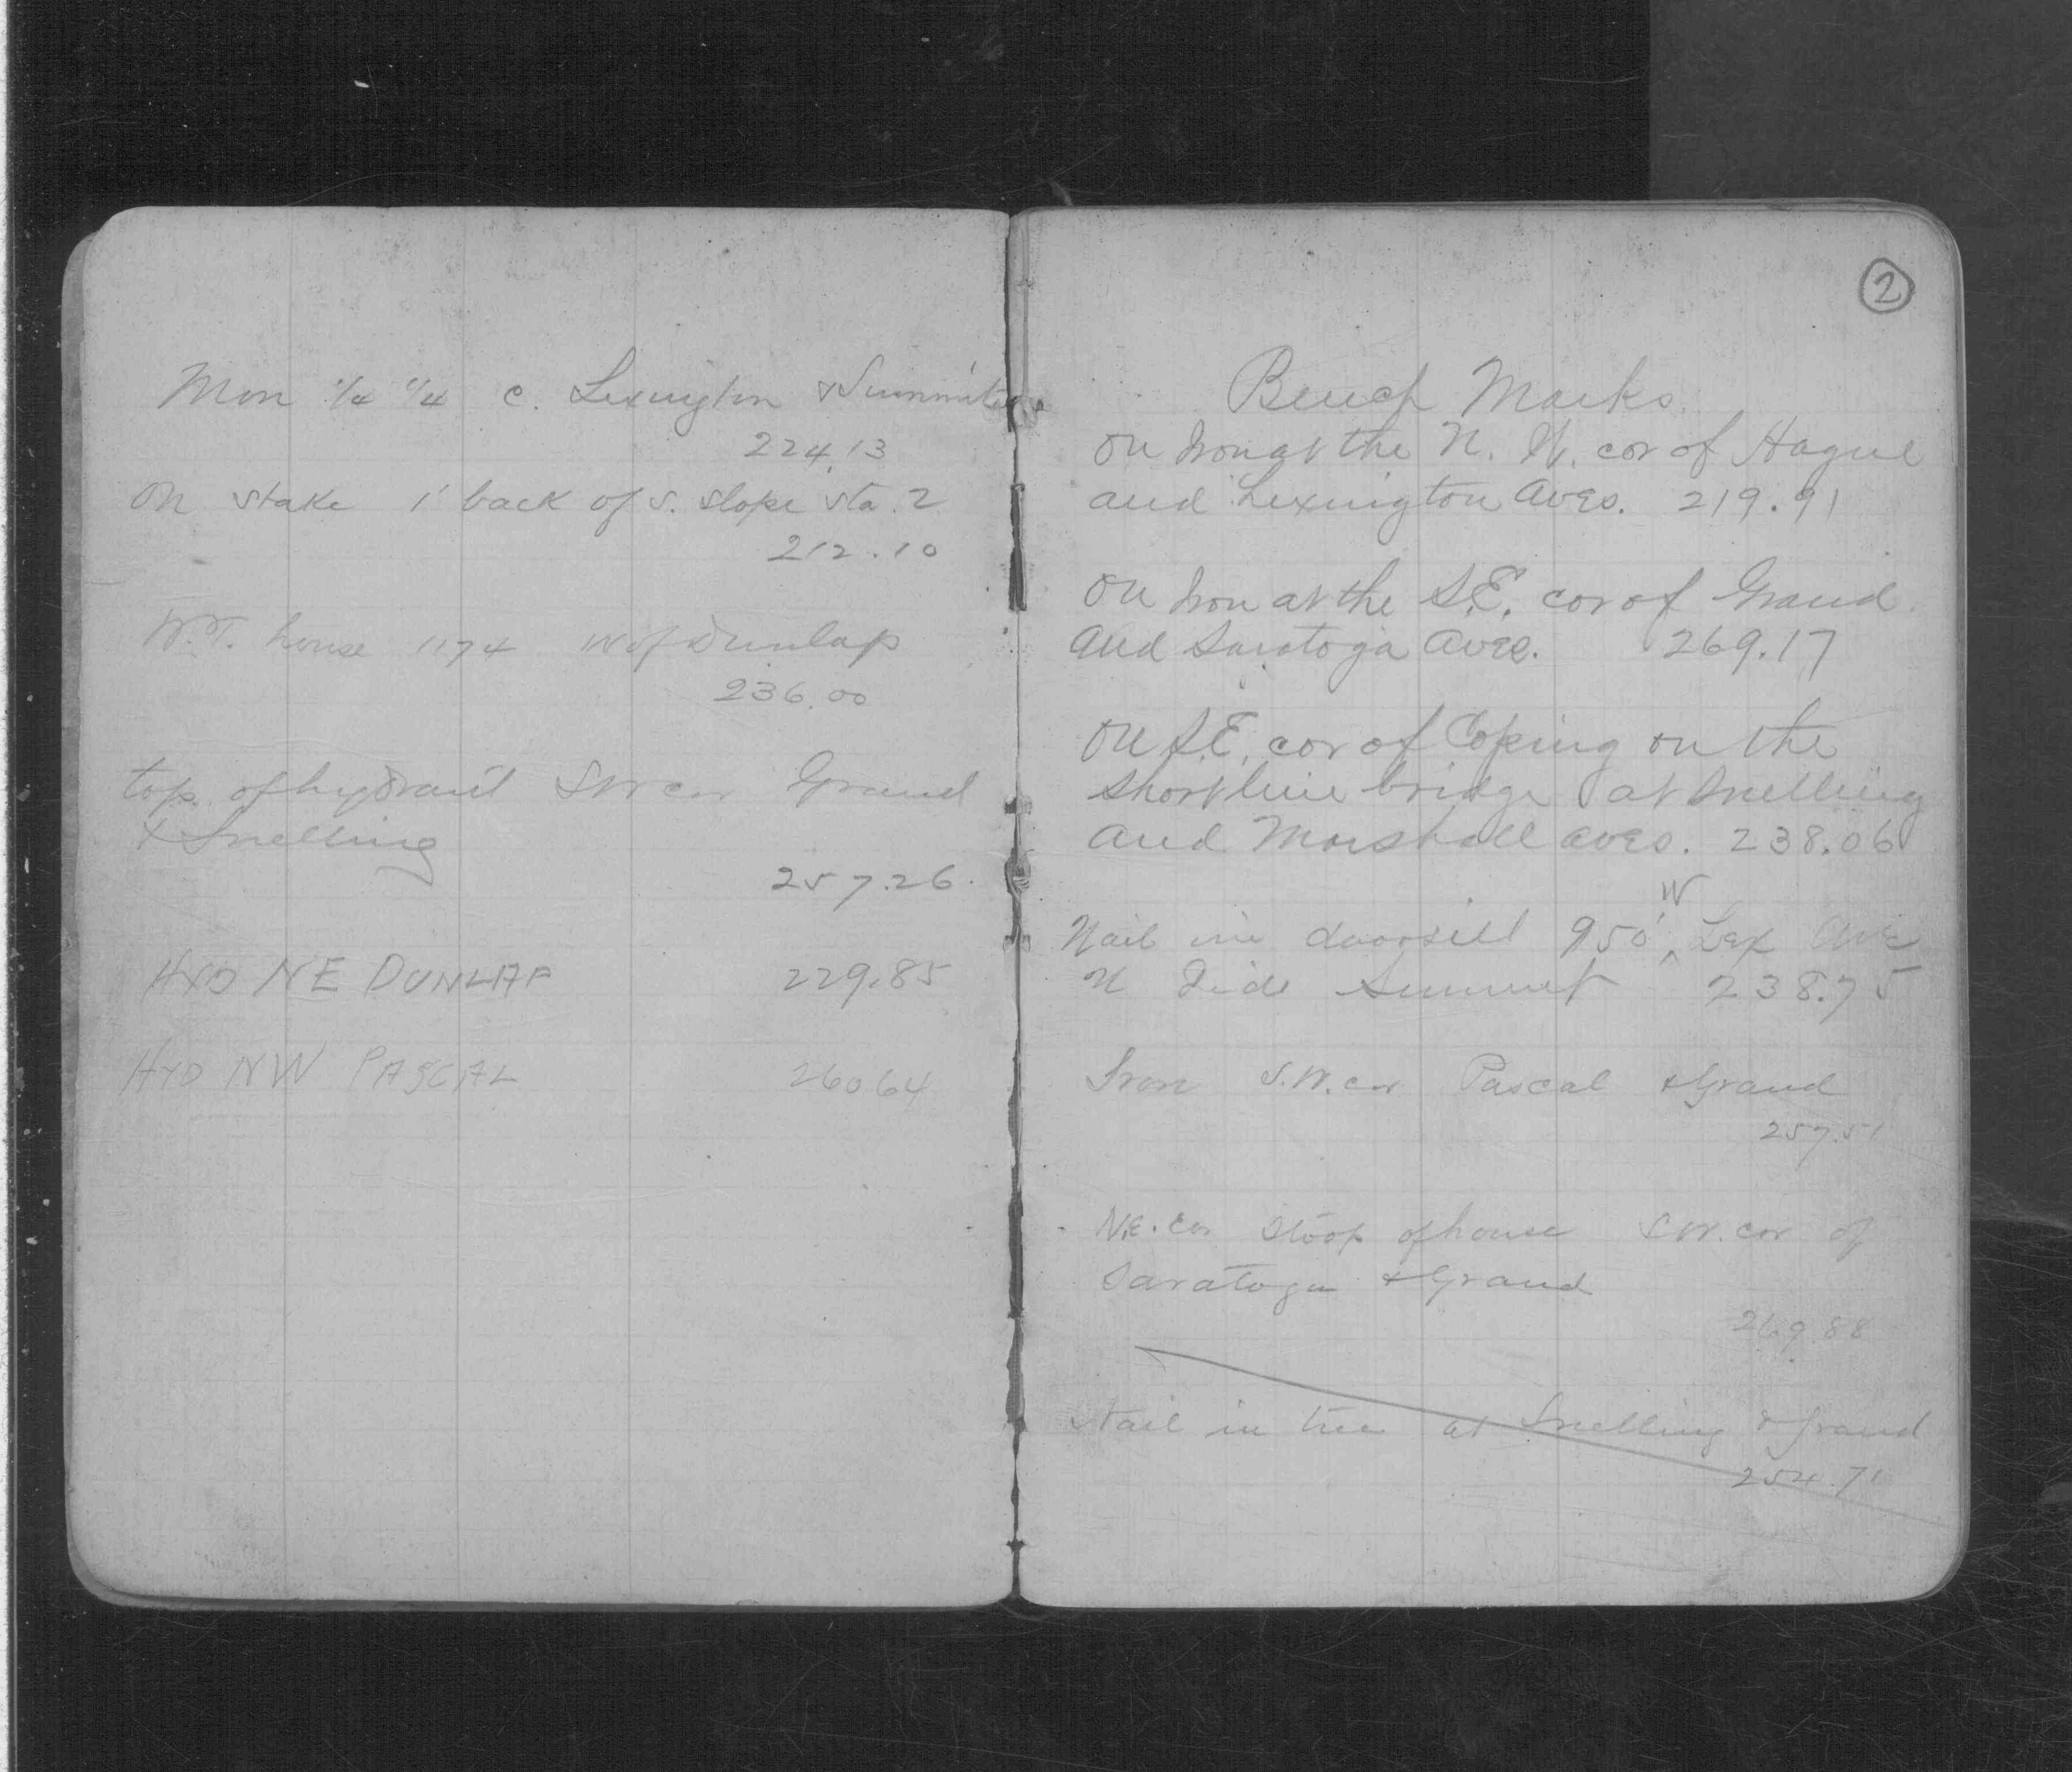 Mon 1/4 1/4 c. Lexington & Summit
224.13
On stake 1' back of S. slope sta. 2
212.10
W.T. house 1174 W of Dunlap
236.00
top of hydrant SW cor Grand
& Snelling
257.26
HYD NE DUNLAP 229.85
HYD NW PASCAL 260.64
2
Bench Marks
On Iron at the N. W. cor of Hague
and Lexington Aves. 219.91
On Iron at the S.E. cor of Grand
and Saratoga Aves. 269.17
On S.E. cor of Coping on the
Shortline bridge at Snelling
and Marshall aves. 238.06
W
Nail in doorsill 950' ^ Lex Ave
N Side Summit 238.75
Iron S.W. cor Pascal & Grand
257.51
N.E. cor Stoop of house S.W. cor of
Saratoga & Grand
269.88
Nail in tree at Snelling & Grand
254.71